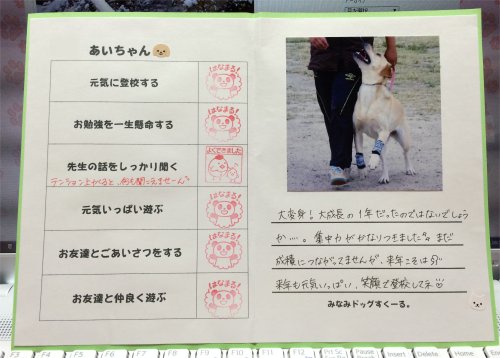 あいちゃん
元気に登校する
はなまる!
お勉強を一生懸命する
はなまる!
先生の話をしっかり聞く
テンション上がると、何も聞こえません
よくできました
元気いっぱい遊ぶ
はなまる!
お友達とごあいさつをする
はなまる!
お友達と仲良く遊ぶ
はなまる!
大変身!大成長の1年だったのではないでしょう
か…。集中力がかなりつきました。まだ
成績につながってませんが、来年こそは
来年も元気いっぱい、笑顔で登校してネ
みなみドッグすくーる。
F3
F4
F5
F6
F7
F8
F9
F10
F11
F12
Prt Sc
Pause
Insert
Delete
Home